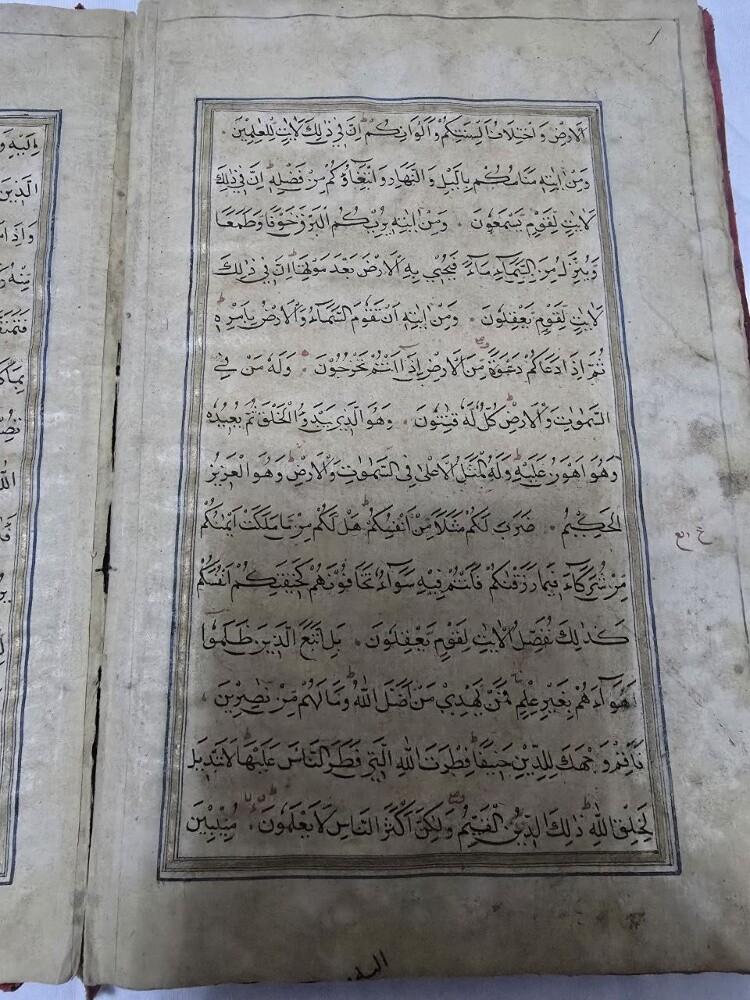 الارض واختلاف السنتكم والوانكم ان في ذلك لايت للعلمين
ومن ايته منامكم باليل والنهار وابتغاؤكم من فضله ان في ذلك
لايت لقوم يسمعون ومن ايته يريكم البرق خوفا وطمعا
وينزل من السماء ماء فيحيي به الارض بعد موتها ان في ذلك
لايت لقوم يعقلون ومن ايته ان تقوم السماء والارض بامره
ثم اذا دعاكم دعوة من الارض اذا انتم تخرجون وله من في
السموت والارض كل له قنتون وهو الذي يبدؤ الخلق ثم يعيده
وهو اهون عليه وله المثل الاعلى في السموت والارض وهو العزيز
الحكيم ضرب لكم مثلا من انفسكم هل لكم من ما ملكت ايمنكم
من شركاء في ما رزقنكم فانتم فيه سواء تخافونهم كخيفتكم انفسكم
كذلك نفصل الايت لقوم يعقلون بل اتبع الذين ظلموا
اهواءهم بغير علم فمن يهدي من اضل الله وما لهم من نصرين
فاقم وجهك للدين حنيفا فطرت الله التي فطر الناس عليها لا تبديل
لخلق الله ذلك الدين القيم ولكن اكثر الناس لا يعلمون منيبين